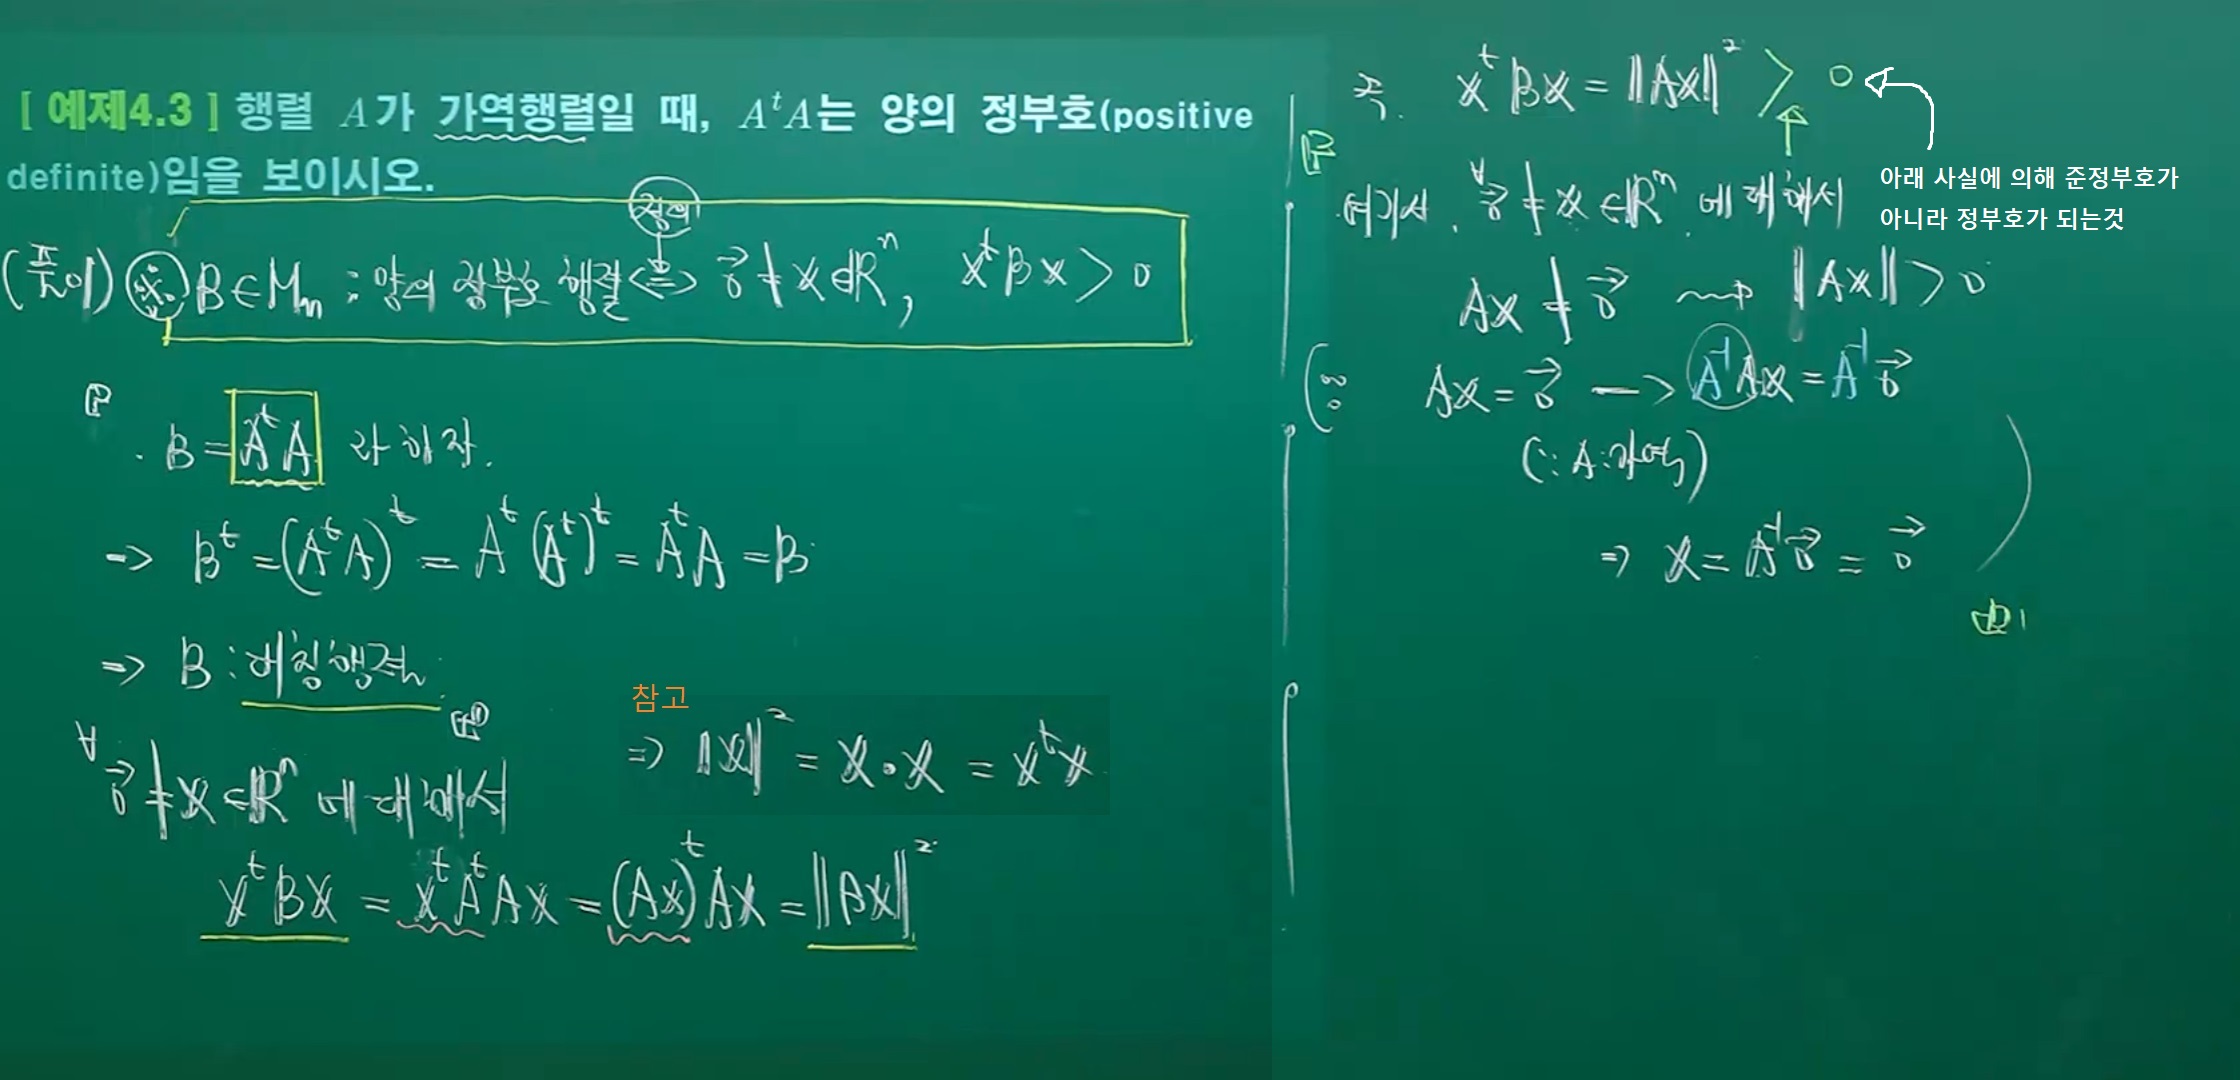 [ 예제4.3 ] 행렬 A가 가역행렬일 때, AᵗA는 양의 정부호(positive
definite)임을 보이시오.
정의
(풀이) B∈Mₙ : 양의 정부호 행렬 ⟺ 0⃗ ≠ x ∈ ℝⁿ, xᵗBx > 0
B = AᵗA 라 하자.
⇒ Bᵗ = (AᵗA)ᵗ = Aᵗ(Aᵗ)ᵗ = AᵗA = B
⇒ B : 대칭행렬
∀ 0⃗ ≠ x ∈ ℝⁿ 에 대해서
참고
⇒ ‖x‖² = x·x = xᵗx
xᵗBx = xᵗAᵗAx = (Ax)ᵗAx = ‖Ax‖²
즉. xᵗBx = ‖Ax‖² > 0
아래 사실에 의해 준정부호가
아니라 정부호가 되는것
여기서, ∀ 0⃗ ≠ x ∈ ℝⁿ 에 대해서
Ax ≠ 0⃗ ⇝ ‖Ax‖ > 0
Ax = 0⃗ → A⁻¹Ax = A⁻¹0⃗
(∵ A : 가역)
⇒ x = A⁻¹0⃗ = 0⃗